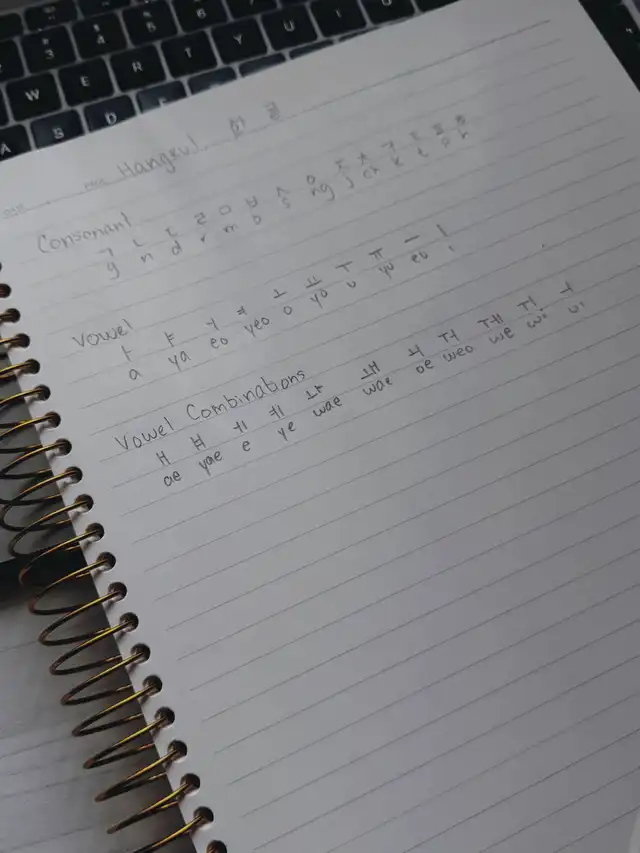 3 4 5 6
W E R T Y U I
A S D
PAGE
Hangeul 한글
Consonant
ㄱ ㄴ ㄷ ㄹ ㅁ ㅂ ㅅ ㅇ ㅈ ㅊ ㅋ ㅌ ㅍ ㅎ
g n d r m b s ng j ch k t p h
Vowel
ㅏ ㅑ ㅓ ㅕ ㅗ ㅛ ㅜ ㅠ ㅡ ㅣ
a ya eo yeo o yo u yu eu i
Vowel Combinations
ㅐ ㅒ ㅔ ㅖ ㅘ ㅙ ㅚ ㅝ ㅞ ㅟ ㅢ
ae yae e ye wae wae oe weo we wi ui